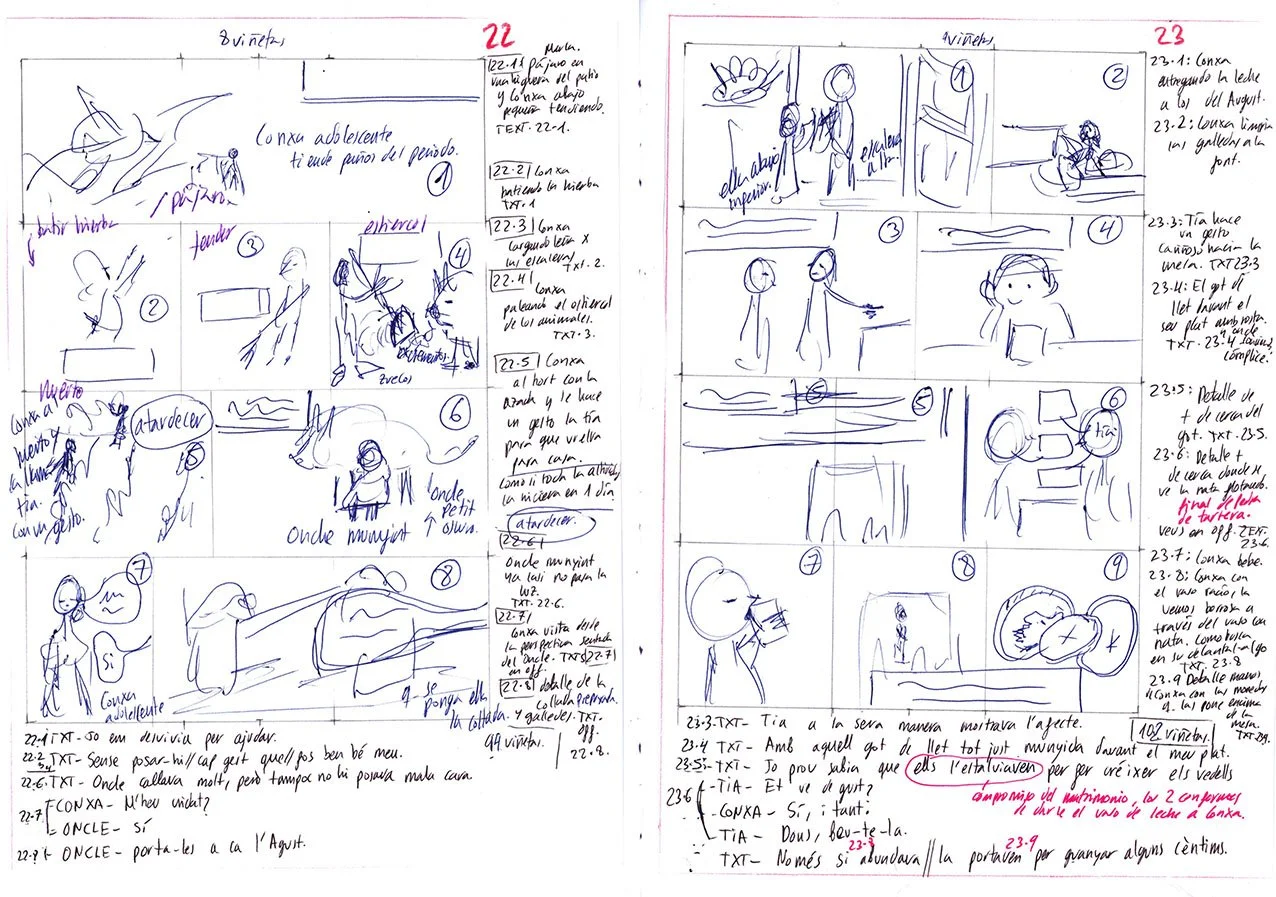 8 viñetas
22
Conxa adolescente
tiende paños del periodo.
pájaro
1
batir hierba
tender
estiercol
2
3
4
excrementos.
zuecos
huerto
Conxa al
huerto y
la llama
tía.
con un gesto.
atardecer
5
6
Oncle munyint
Oncle
petit
7
Sí
Conxa
adolescente
8
se
ponga ella
la collada.
22.1 pájaro en
del patio
y Conxa abajo
pequeña tendiendo.
TEXT. 22-1.
22.2 Conxa
batiendo la hierba
TXT. 1
22.3 Conxa
cargando leña x
las escaleras
TXT. 2.
22.4 Conxa
paleando el estiercol
de los animales.
TXT. 3.
22.5 Conxa
al hort con la
azada y le hace
un gesto la tía
para que vuelva
para casa.
como si toda la
la hiciera en 1 día
atardecer.
22.6
Oncle munyint
ya casi no para la
luz.
TXT. 22-6.
22.7
Conxa vista desde
la perspectiva sentada
del Oncle. TXTS 22-7
en off.
22.8 detalle de la
collada preparada
y galledes. TXT.
off.
22.8.
99 viñetas.
22.1 TXT- Jo em desvivia per ajudar.
TXT- Sense posar-hi // cap gest que // fos ben bé meu.
22.6. TXT- Oncle callava molt, però tampoc no hi posava mala cara.
22.7 CONXA- M'heu cridat?
ONCLE- Sí
ONCLE- porta-les a ca l'Agust.
9 viñetas
23
1
ella abajo
inferior.
escalera
alta.
2
3
4
5
6
tía
7
8
9
23.1: Conxa
entregando la leche
a los del August.
23.2: Conxa limpia
las galledes a la
font.
23.3: Tía hace
un gesto
cariñoso hacia la
mesa. TXT 23.3
23.4: El got de
llet davant el
seu plat amb rosta.
y oncle
TXT. 23.4
cómplice.
23.5: Detalle de
+ de cerca del
got. TXT. 23.5.
23.6: Detalle +
de cerca donde se
ve la nata flotando.
final de
de tartera.
veus en off. TEXT.
23.6.
23.7: Conxa bebe.
23.8: Conxa con
el vaso vacío, la
vemos borrosa a
través del vaso con
nata. Como busca
en su delantal algo
TXT. 23.8
23.9 Detalle manos
de Conxa con las monedas
q. las pone encima
de la
mesa.
TXT. 23.9.
23.3. TXT- Tia a la seva manera mostrava l'afecte.
108 viñetas.
23.4 TXT- Amb aquell got de llet tot just munyida davant el meu plat.
23.5 TXT- Jo prou sabia que ells l'estalviaven per fer créixer els vedells
23.6 - TIA- Et ve de gust?
compromiso del matrimonio, los 2 conformes
de darle el vaso de leche a Conxa.
- CONXA- Sí, i tant!
- TIA- Doncs, beu-te-la.
23.8
23.9
TXT- Només si abundava // la portaven per guanyar alguns cèntims.